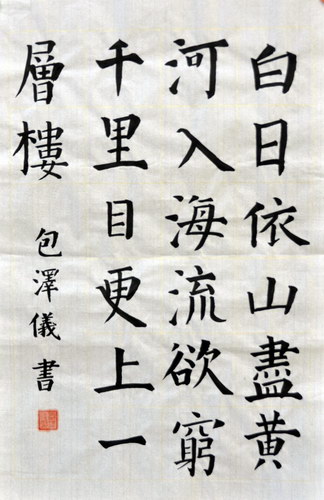 白日依山盡黄
河入海流欲窮
千里目更上一
層樓
包澤儀書